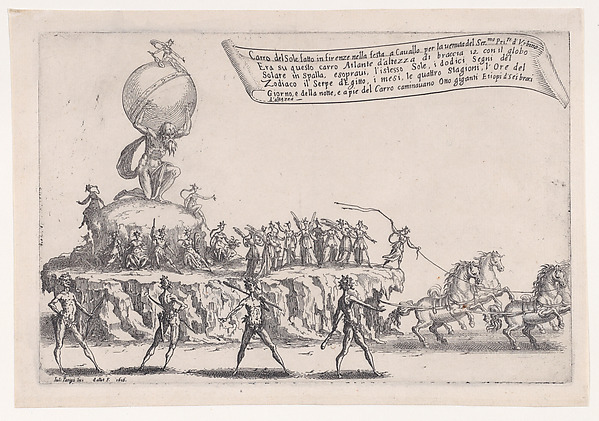 Carro del Sole fatto in firenze nella festa a Cavallo per la venuta del Ser.mo Pri.pe d'Urbino
Era su questo carro Atlante d'altezza di braccia 12 con il globo
Solare in Spalla, e sopravi, l'istesso Sole, i dodici Segni del
Zodiaco il Serpe d'Egitto, i mesi, le quattro Stagioni, l'Ore del
Giorno, e della notte, e a pie del Carro caminavano Otto giganti Etiopi di sei bracc
d'altezze
Iuli Parigii Inv. Callot F. 1616.